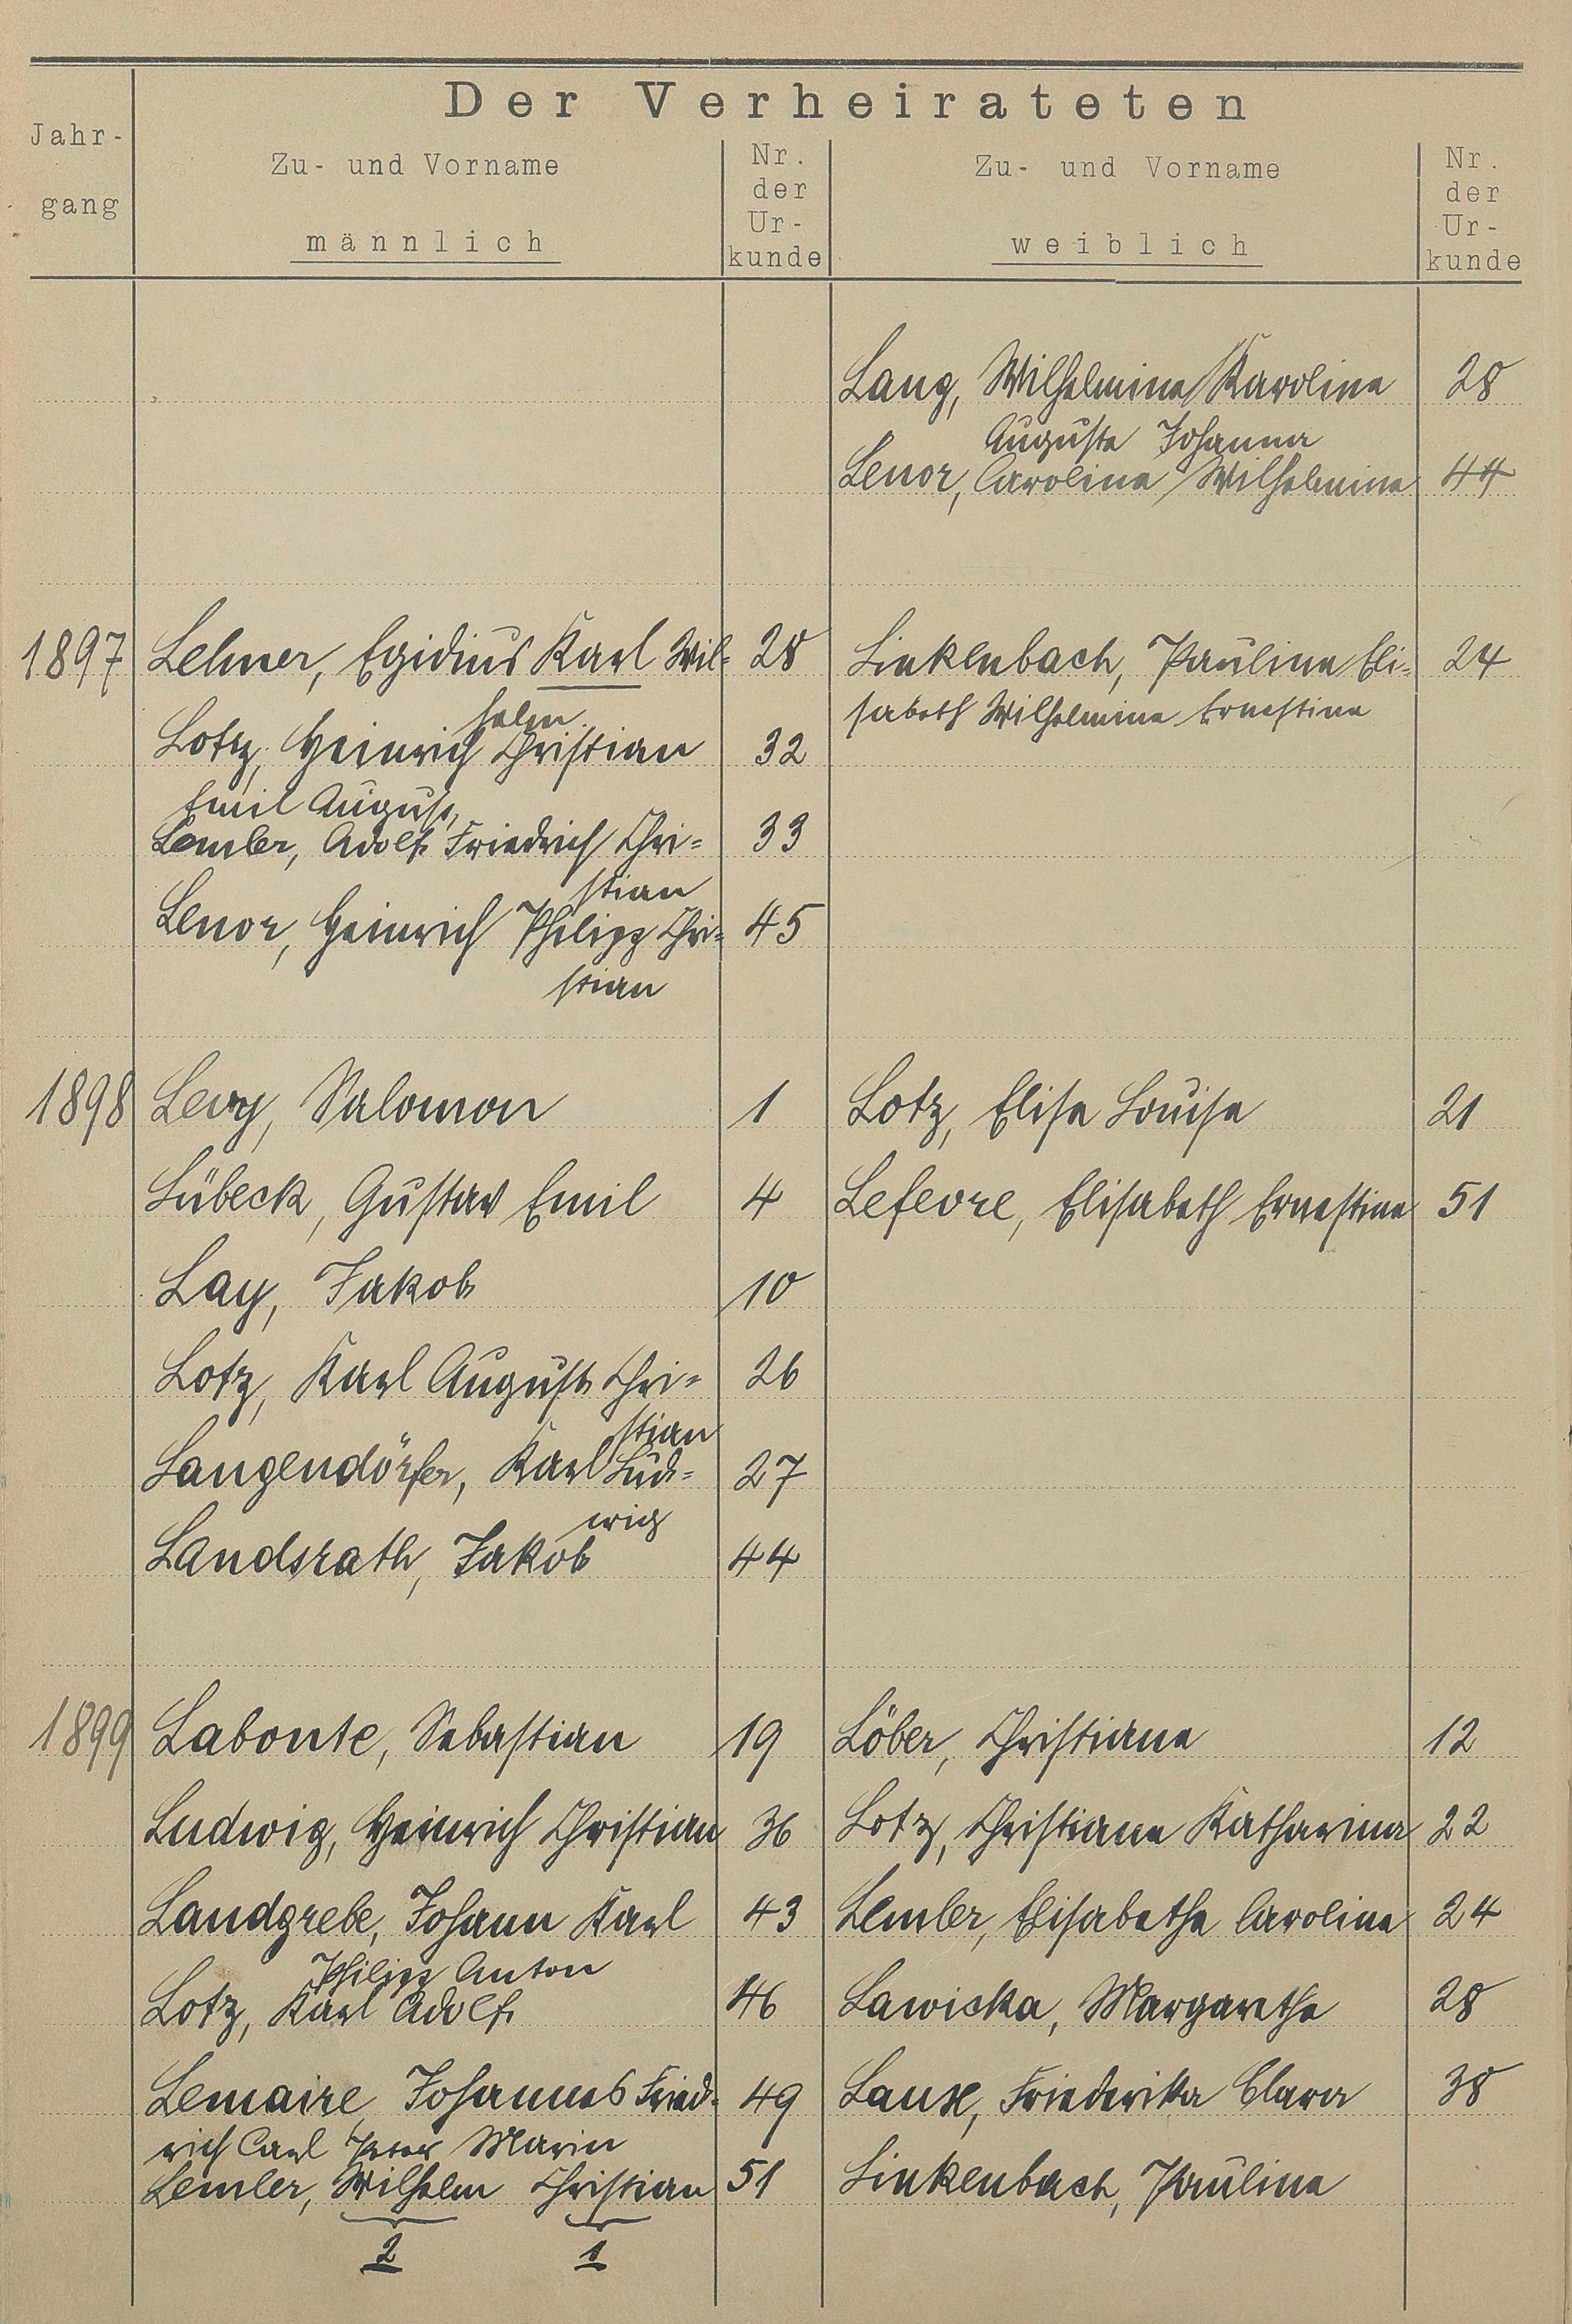 Der Verheirateten
Jahr-
gang
Zu- und Vorname
männlich
Nr.
der
Ur-
kunde
Zu- und Vorname
weiblich
Nr.
der
Ur-
kunde
Lang, Wilhelmine Karoline 28
Auguste Johanna
Lenor, Caroline Wilhelmine 44
1897 Lehner, Egidius Karl Wil= 28 Linkenbach, Pauline Eli= 24
helm sabeth Wilhelmine Ernestine
Lotz, Heinrich Christian 32
Emil August,
Lemler, Adolf Friedrich Chri= 33
stian
Lenor, Heinrich Philipp Chri= 45
stian
1898 Levy, Salomon 1 Lotz, Elise Louise 21
Lübeck, Gustav Emil 4 Lefevre, Elisabeth Ernestine 51
Lay, Jakob 10
Lotz, Karl August Chri= 26
stian
Langendörfer, Karl Lud= 27
wig
Landsrath, Jakob 44
1899 Labonte, Sebastian 19 Löber, Christiane 12
Ludwig, Heinrich Christian 36 Lotz, Christiane Katharina 22
Landgrebe, Johann Karl 43 Lemler, Elisabethe Caroline 24
Philipp Anton
Lotz, Karl Adolf 46 Lawicka, Margarethe 28
Lemaire Johannes Fried- 49 Laux, Friederika Clara 38
rich Carl Peter Maria
Lemler, Wilhelm Christian 51 Linkenbach, Pauline
2 1